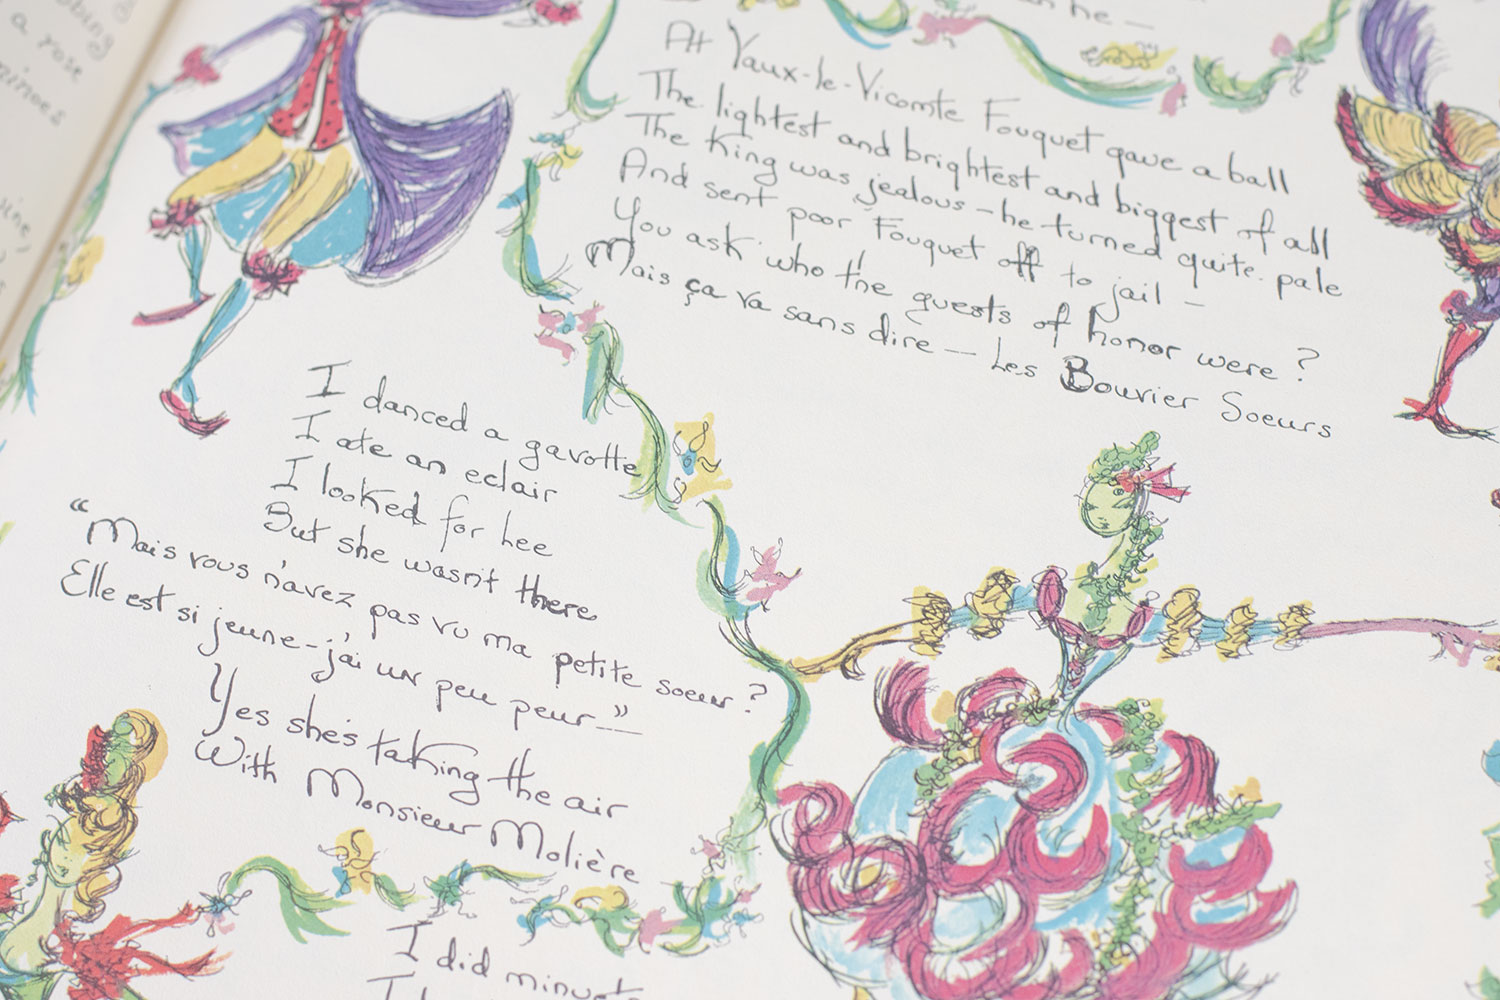 a rose
At Vaux-le-Vicomte Fouquet gave a ball
The lightest and brightest and biggest of all
The King was jealous – he turned quite pale
And sent poor Fouquet off to jail –
You ask who the guests of honor were?
Mais ça va sans dire – Les Bouvier Soeurs
I danced a gavotte
I ate an eclair
I looked for Lee
But she wasn't there
"Mais vous n'avez pas vu ma petite soeur?
Elle est si jeune – j'ai un peu peur –"
Yes she's taking the air
With Monsieur Molière
I did minuets